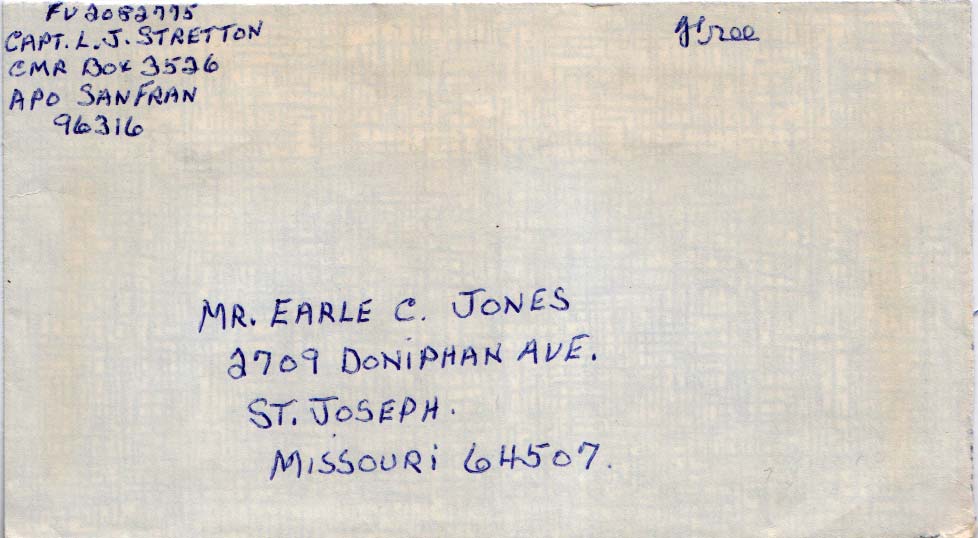 FV2082775
CAPT. L. J. STRETTON
CMR BOX 3526
APO SANFRAN
96316
Free
MR. EARLE C. JONES
2709 DONIPHAN AVE.
ST. JOSEPH.
MISSOURi 64507.